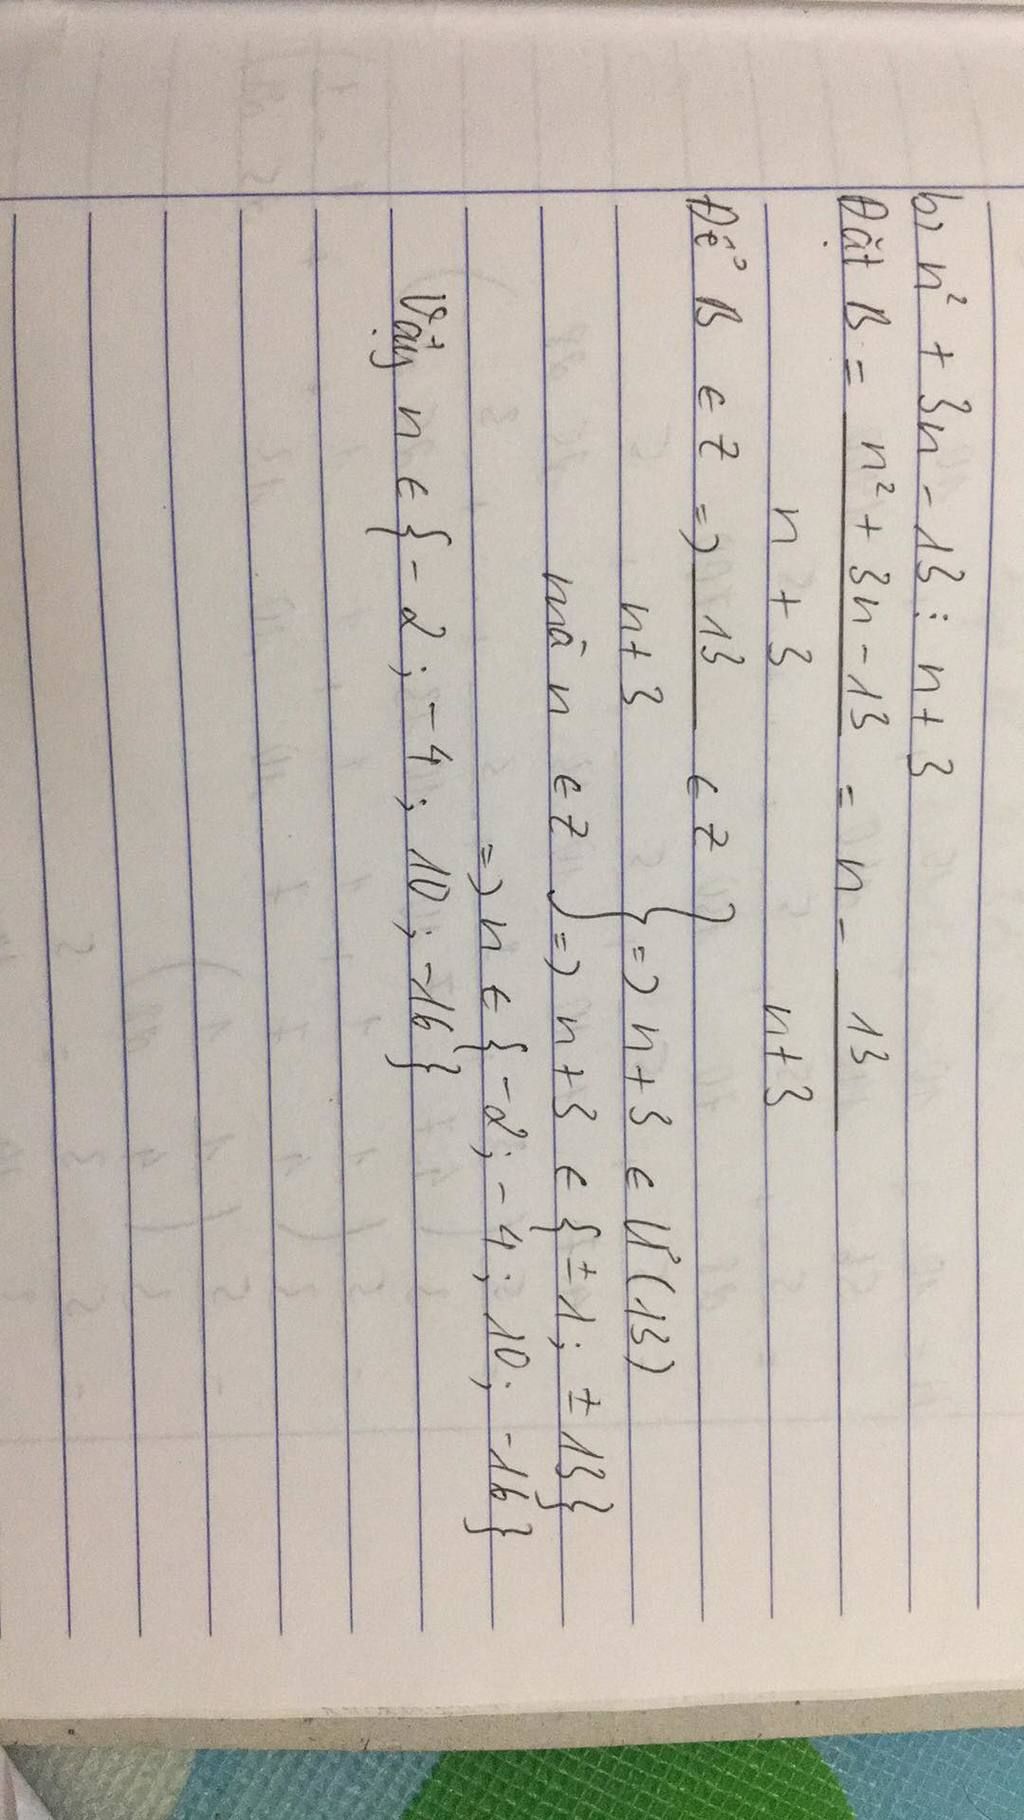 b) n² + 3n - 13 ⋮ n + 3
Đặt B = n² + 3n - 13 = n - 13
n + 3 n+3
Để B ∈ Z => 13 ∈ Z
n+3 } => n+3 ∈ Ư(13)
mà n ∈ Z } => n+3 ∈ { ±1; ±13}
=> n ∈ { -2; -4; 10; -16}
Vậy n ∈ { -2; -4; 10; -16}